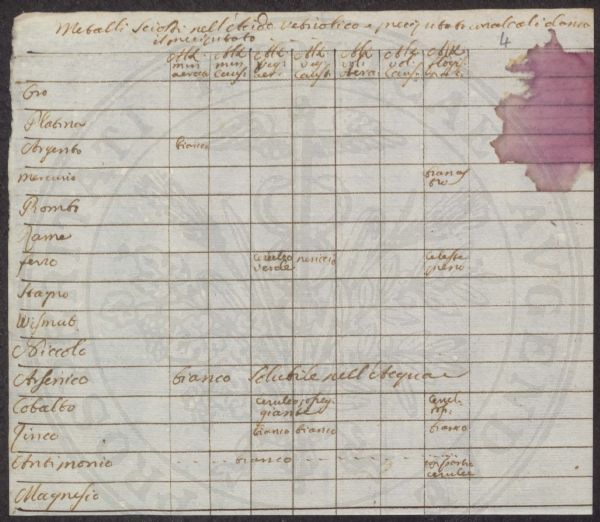 Metalli Sciolti nell'Acido Vetriolico e precipitati con alcali danno
il precipitato
4
Alk min aerea Alk min caust Alk veg aer. Alk veg caust Alk vol. aera Alk vol. caust Alk flogis
Oro
Platina
Argento bianco
Mercurio bianco
Piombo
Rame
ferro ceruleo verde nericcio celeste pieno
Stagno
Wismut
Niccolo
Arsenico bianco Solubile nell'Acqua
Cobalto ceruleo
Zinco bianco bianco bianco
Antimonio bianco cerulee
Magnesio